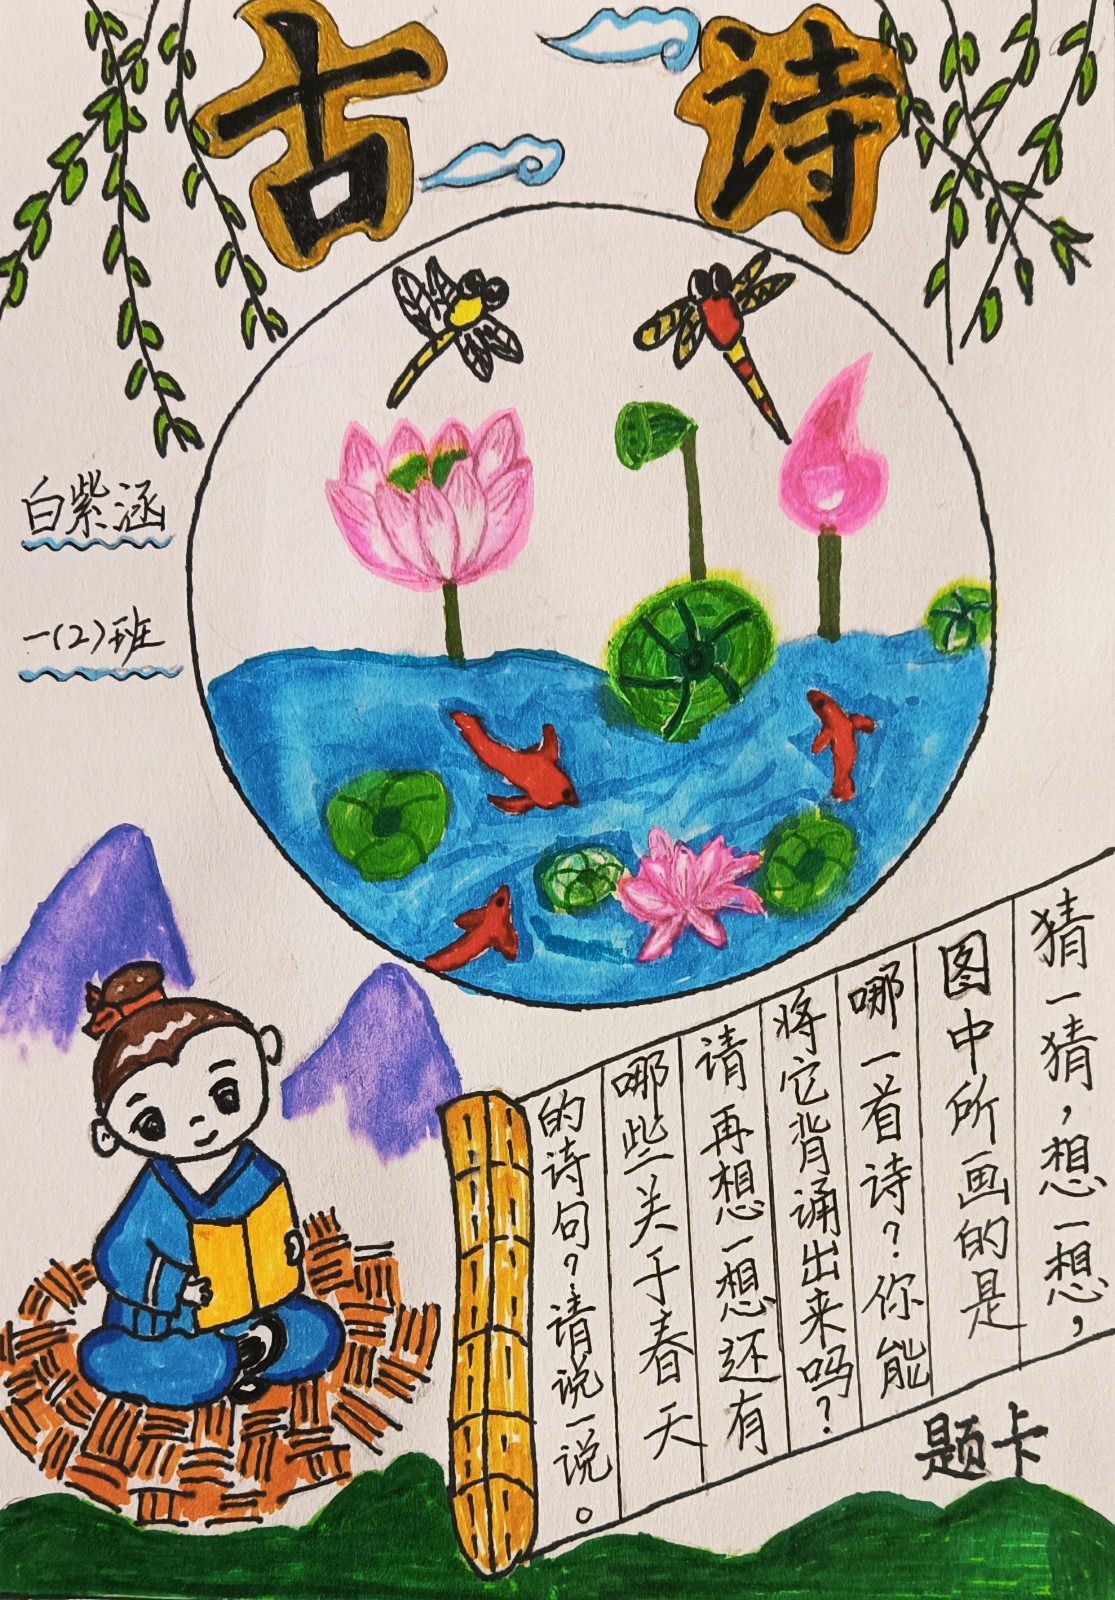 古诗
白紫涵
一(2)班
猜一猜，想一想，
图中所画的是
哪一首诗？你能
将它背诵出来吗？
请再想一想还有
哪些关于春天
的诗句？请说一说。
题卡